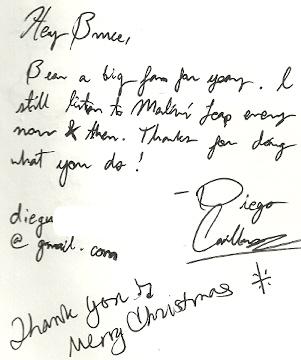 Hey Bruce,
Been a big fan for years. I
still listen to Makin' Leap every
now & then. Thanks for doing
what you do!
- Diego
diegu
@ gmail.com
Thank you &
Merry Christmas